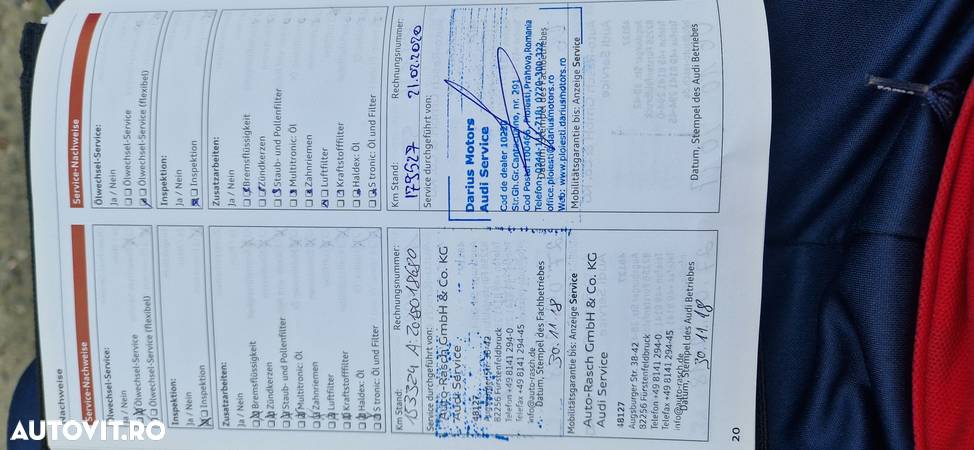 Nachweise
Service-Nachweise
Ölwechsel-Service:
Ja / Nein
Ölwechsel-Service
Ölwechsel-Service (flexibel)
Inspektion:
Ja / Nein
Inspektion
Zusatzarbeiten:
Ja / Nein
Bremsflüssigkeit
Zündkerzen
Staub- und Pollenfilter
Multitronic: Öl
Zahnriemen
Luftfilter
Kraftstofffilter
Haldex: Öl
S tronic: Öl und Filter
Km Stand: Rechnungsnummer:
153324
Service durchgeführt von:
Auto-Rasch GmbH & Co. KG
Audi Service
48127
Augsburger Str. 38-42
82256 Fürstenfeldbruck
Telefon +49 8141 294-0
Telefax +49 8141 294-45
info@auto-rasch.de
Datum, Stempel des Fachbetriebes
30.11.18
Mobilitätsgarantie bis: Anzeige Service
Auto-Rasch GmbH & Co. KG
Audi Service
48127
Augsburger Str. 38-42
82256 Fürstenfeldbruck
Telefon +49 8141 294-0
Telefax +49 8141 294-45
info@auto-rasch.de
Datum, Stempel des Audi Betriebes
30.11.18
20
Service-Nachweise
Ölwechsel-Service:
Ja / Nein
Ölwechsel-Service
Ölwechsel-Service (flexibel)
Inspektion:
Ja / Nein
Inspektion
Zusatzarbeiten:
Ja / Nein
Bremsflüssigkeit
Zündkerzen
Staub- und Pollenfilter
Multitronic: Öl
Zahnriemen
Luftfilter
Kraftstofffilter
Haldex: Öl
S tronic: Öl und Filter
Km Stand: Rechnungsnummer:
175527 21.02.2020
Service durchgeführt von:
Darius Motors
Audi Service
Cod de dealer
Str.Gh.Gr.Cantacuzino, nr. 291
Cod Postal 100466, Ploiesti, Prahova, Romania
Datum, Stempel des Fachbetriebes
office.ploiesti@dariusmotors.ro
Web: www.ploiesti.dariusmotors.ro
Mobilitätsgarantie bis: Anzeige Service
Datum, Stempel des Audi Betriebes
AUTOVIT.RO